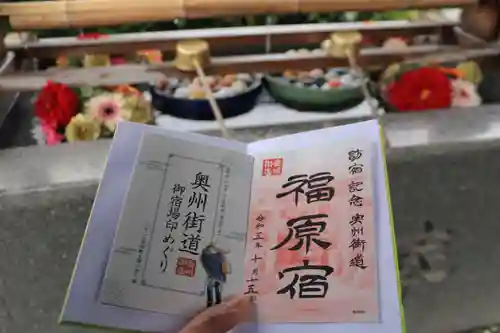 訪宿記念 奥州街道
福原宿
令和三年十月十五
奥州街道
御宿場印めぐり